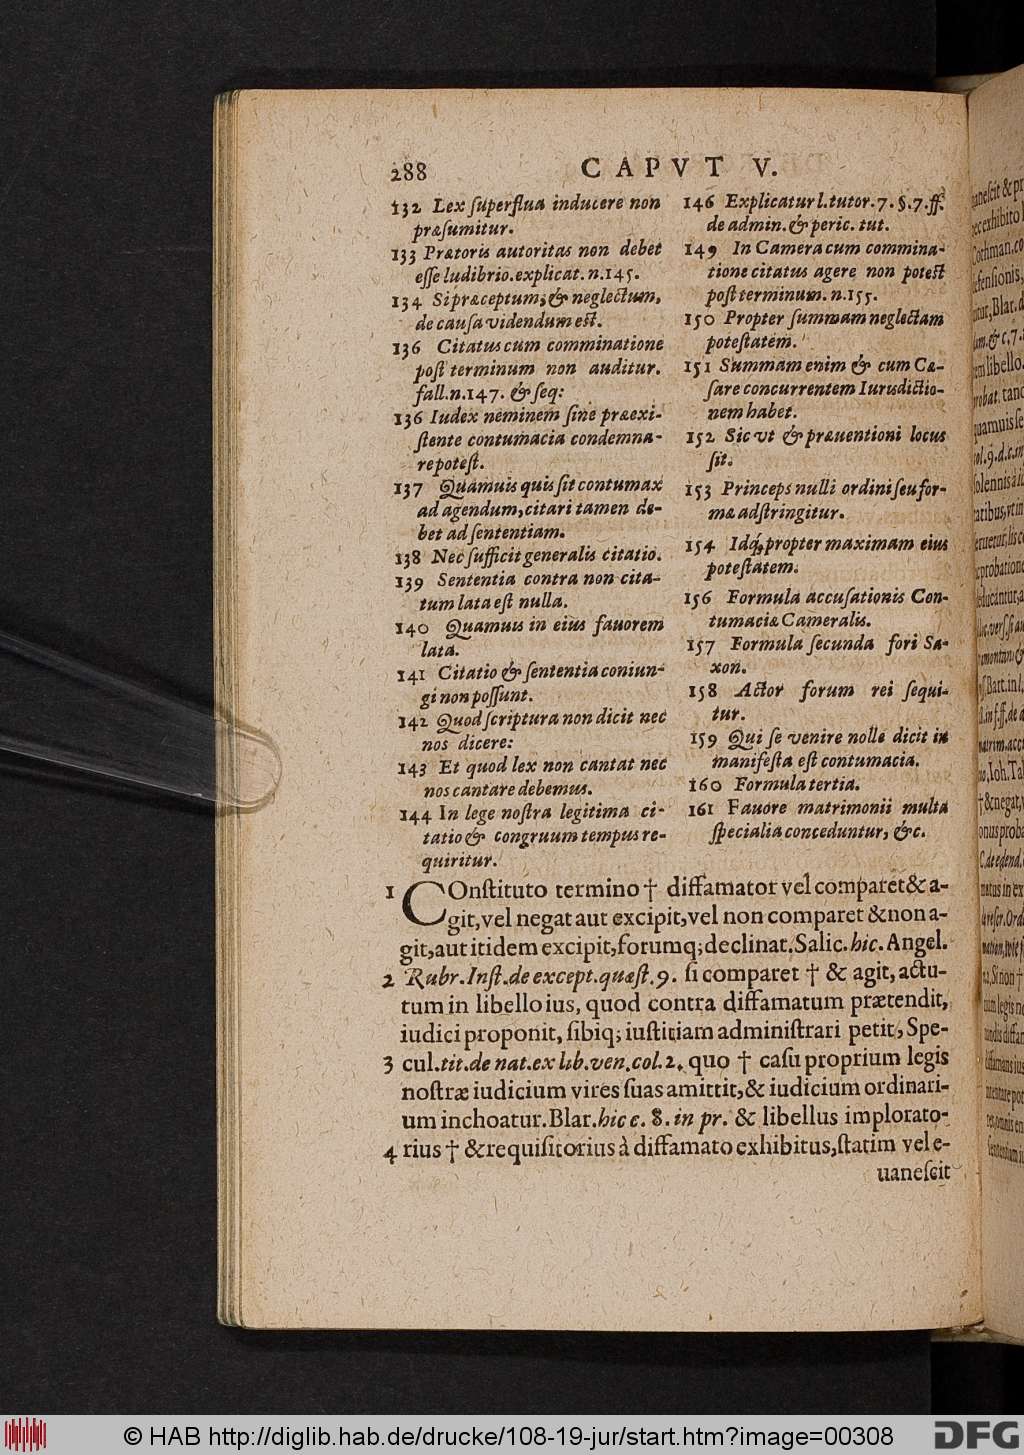 288 CAPVT V.
132 Lex ſuperflua inducere non
præſumitur.
133 Prætoris autoritas non debet
eſſe ludibrio.explicat.n.145.
134 Si præceptum;& neglectum,
de cauſa videndum eſt.
136 Citatus cum comminatione
poſt terminum non auditur.
fall.n.147. & ſeq:
136 Iudex neminem ſine præexi-
ſtente contumacia condemna-
re poteſt.
137 Quamuis quis ſit contumax
ad agendum,citari tamen de-
bet ad ſententiam.
138 Nec ſufficit generalis citatio.
139 Sententia contra non cita-
tum lata eſt nulla.
140 Quamuis in eius fauorem
lata.
141 Citatio & ſententia coniun-
gi non poſſunt.
142 Quod ſcriptura non dicit nec
nos dicere:
143 Et quod lex non cantat nec
nos cantare debemus.
144 In lege noſtra legitima ci-
tatio & congruum tempus re-
quiritur.
146 Explicatur l.tutor.7.§.7.ff.
de admin.& peric. tut.
149 In Camera cum commina-
tione citatus agere non poteſt
poſt terminum. n.155.
150 Propter ſummam neglectam
poteſtatem.
151 Summam enim & cum Cæ-
ſare concurrentem Iurisdictio-
nem habet.
152 Sic vt & præuentioni locus
ſit.
153 Princeps nulli ordini ſeu for-
mæ adſtringitur.
154 Idq́;propter maximam eius
poteſtatem.
156 Formula accuſationis Con-
tumaciæ Cameralis.
157 Formula ſecunda fori Sa-
xon.
158 Actor forum rei ſequi-
tur.
159 Qui ſe venire nolle dicit in
manifeſta eſt contumacia.
160 Formula tertia.
161 Fauore matrimonii multa
ſpecialia conceduntur, &c.
1 COnſtituto termino † diffamator vel comparet & a-
git,vel negat aut excipit,vel non comparet & non a-
git,aut itidem excipit,forumq; declinat.Salic.hic.Angel.
2 Rubr.Inſt.de except.quæſt.9. ſi comparet † & agit, actu-
tum in libello ius, quod contra diffamatum prætendit,
iudici proponit, ſibiq; iuſtitiam adminiſtrari petit, Spe-
3 cul.tit.de nat.ex lib.ven.col.2. quo † caſu proprium legis
noſtræ iudicium vires ſuas amittit,& iudicium ordinari-
um inchoatur.Blar.hic c. 8. in pr. & libellus implorato-
4 rius † & requiſitorius à diffamato exhibitus,ſtatim vel e-
uaneſcit
© HAB http://diglib.hab.de/drucke/108-19-jur/start.htm?image=00308
DFG